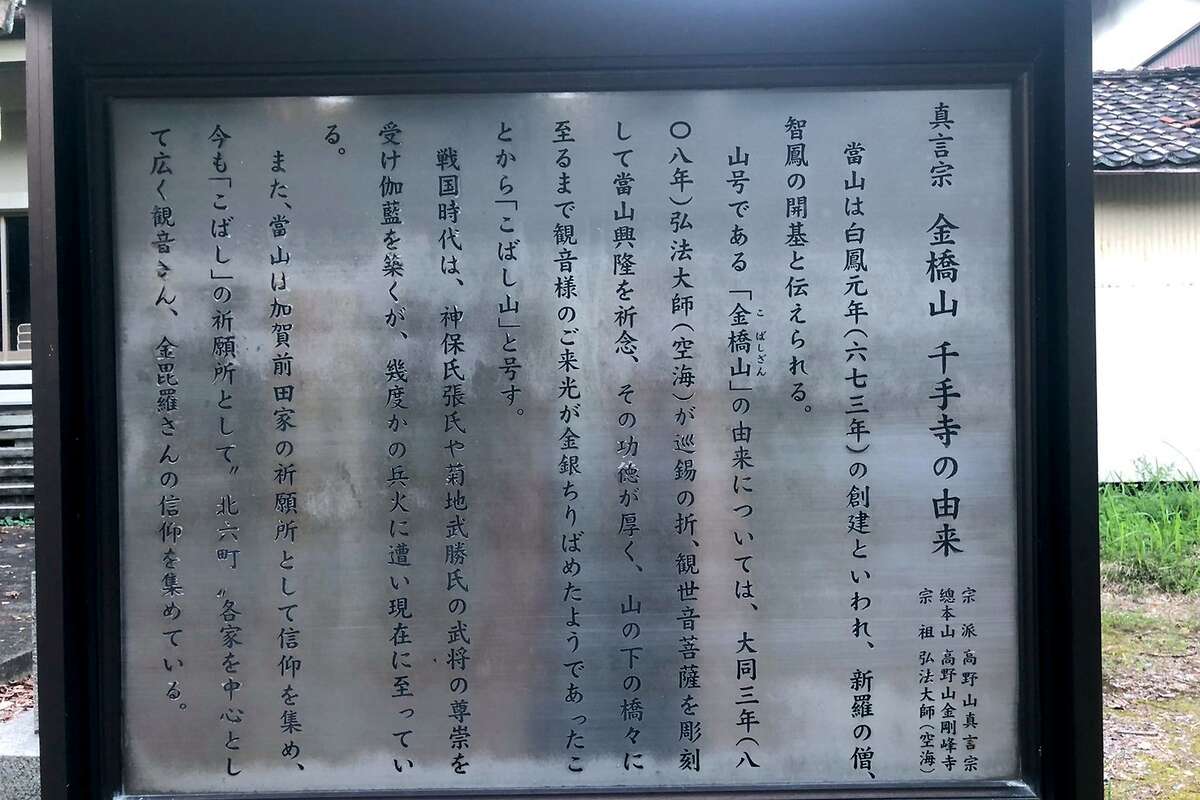 真言宗 金橋山 千手寺の由来
宗派 高野山真言宗
總本山 高野山金剛峰寺
宗祖 弘法大師(空海)
當山は白鳳元年(六七三年)の創建といわれ、新羅の僧、
智鳳の開基と伝えられる。
山号である「金橋山」の由来については、大同三年(八
こばしざん
〇八年)弘法大師(空海)が巡錫の折、観世音菩薩を彫刻
して當山興隆を祈念、その功徳が厚く、山の下の橋々に
至るまで観音様のご来光が金銀ちりばめたようであったこ
とから「こばし山」と号す。
戦国時代は、神保氏張氏や菊地武勝氏の武将の尊崇を
受け伽藍を築くが、幾度かの兵火に遭い現在に至ってい
る。
また、當山は加賀前田家の祈願所として信仰を集め、
今も「こばし」の祈願所として〝北六町〟各家を中心とし
て広く観音さん、金毘羅さんの信仰を集めている。